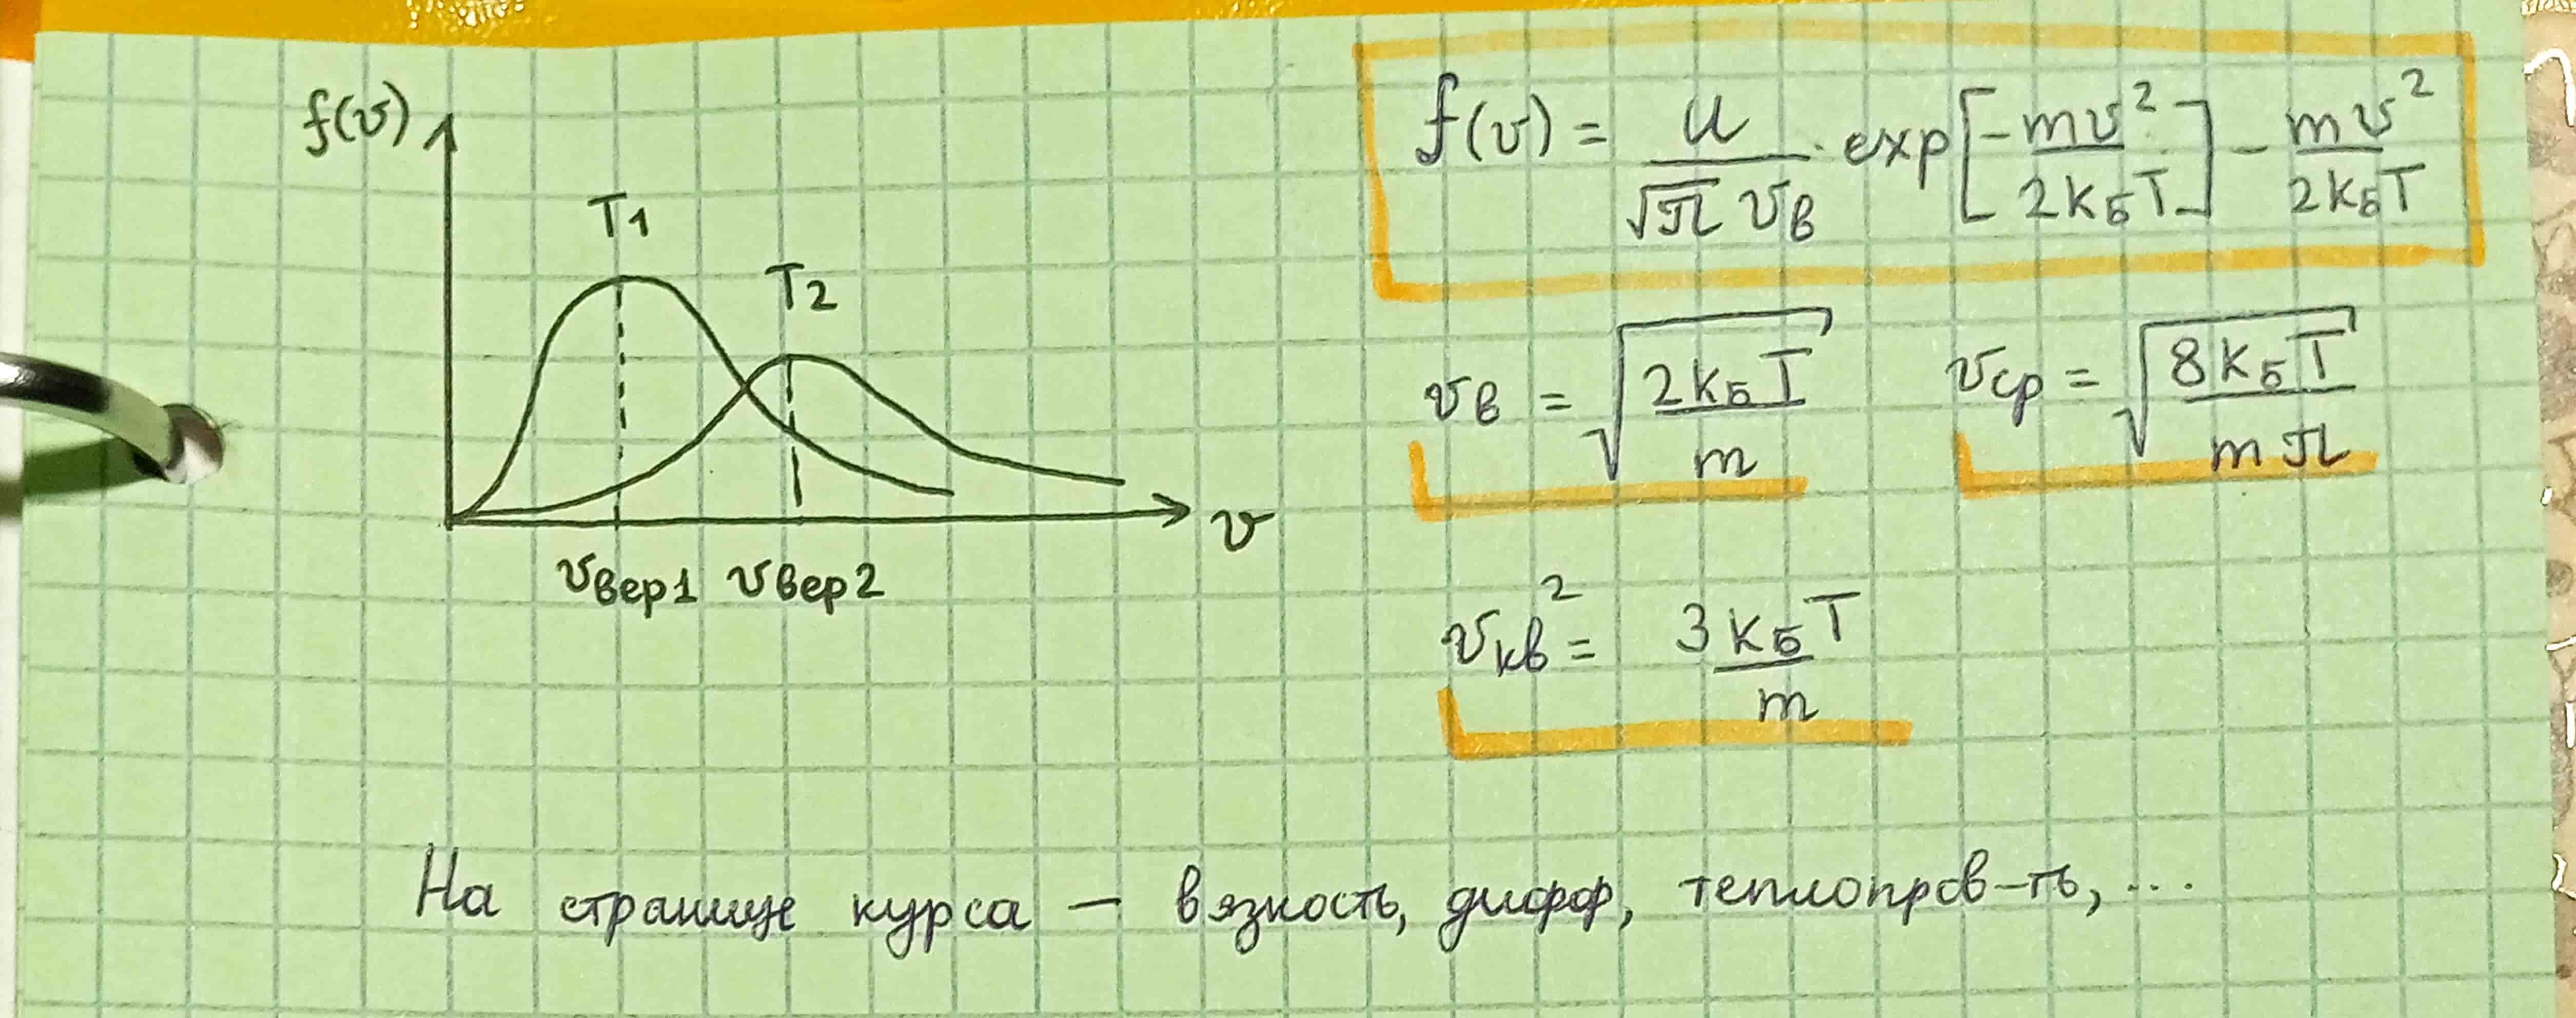 f(v)
T1
T2
v
vвер1 vвер2
f(v) = u / √π vв · exp[-mv² / 2kБT] - mv² / 2kБT
vв = √(2kБT / m)
vср = √(8kБT / mπ)
vкв² = 3kБT / m
На странице курса — вязкость, дифф, теплопров-ть, ...